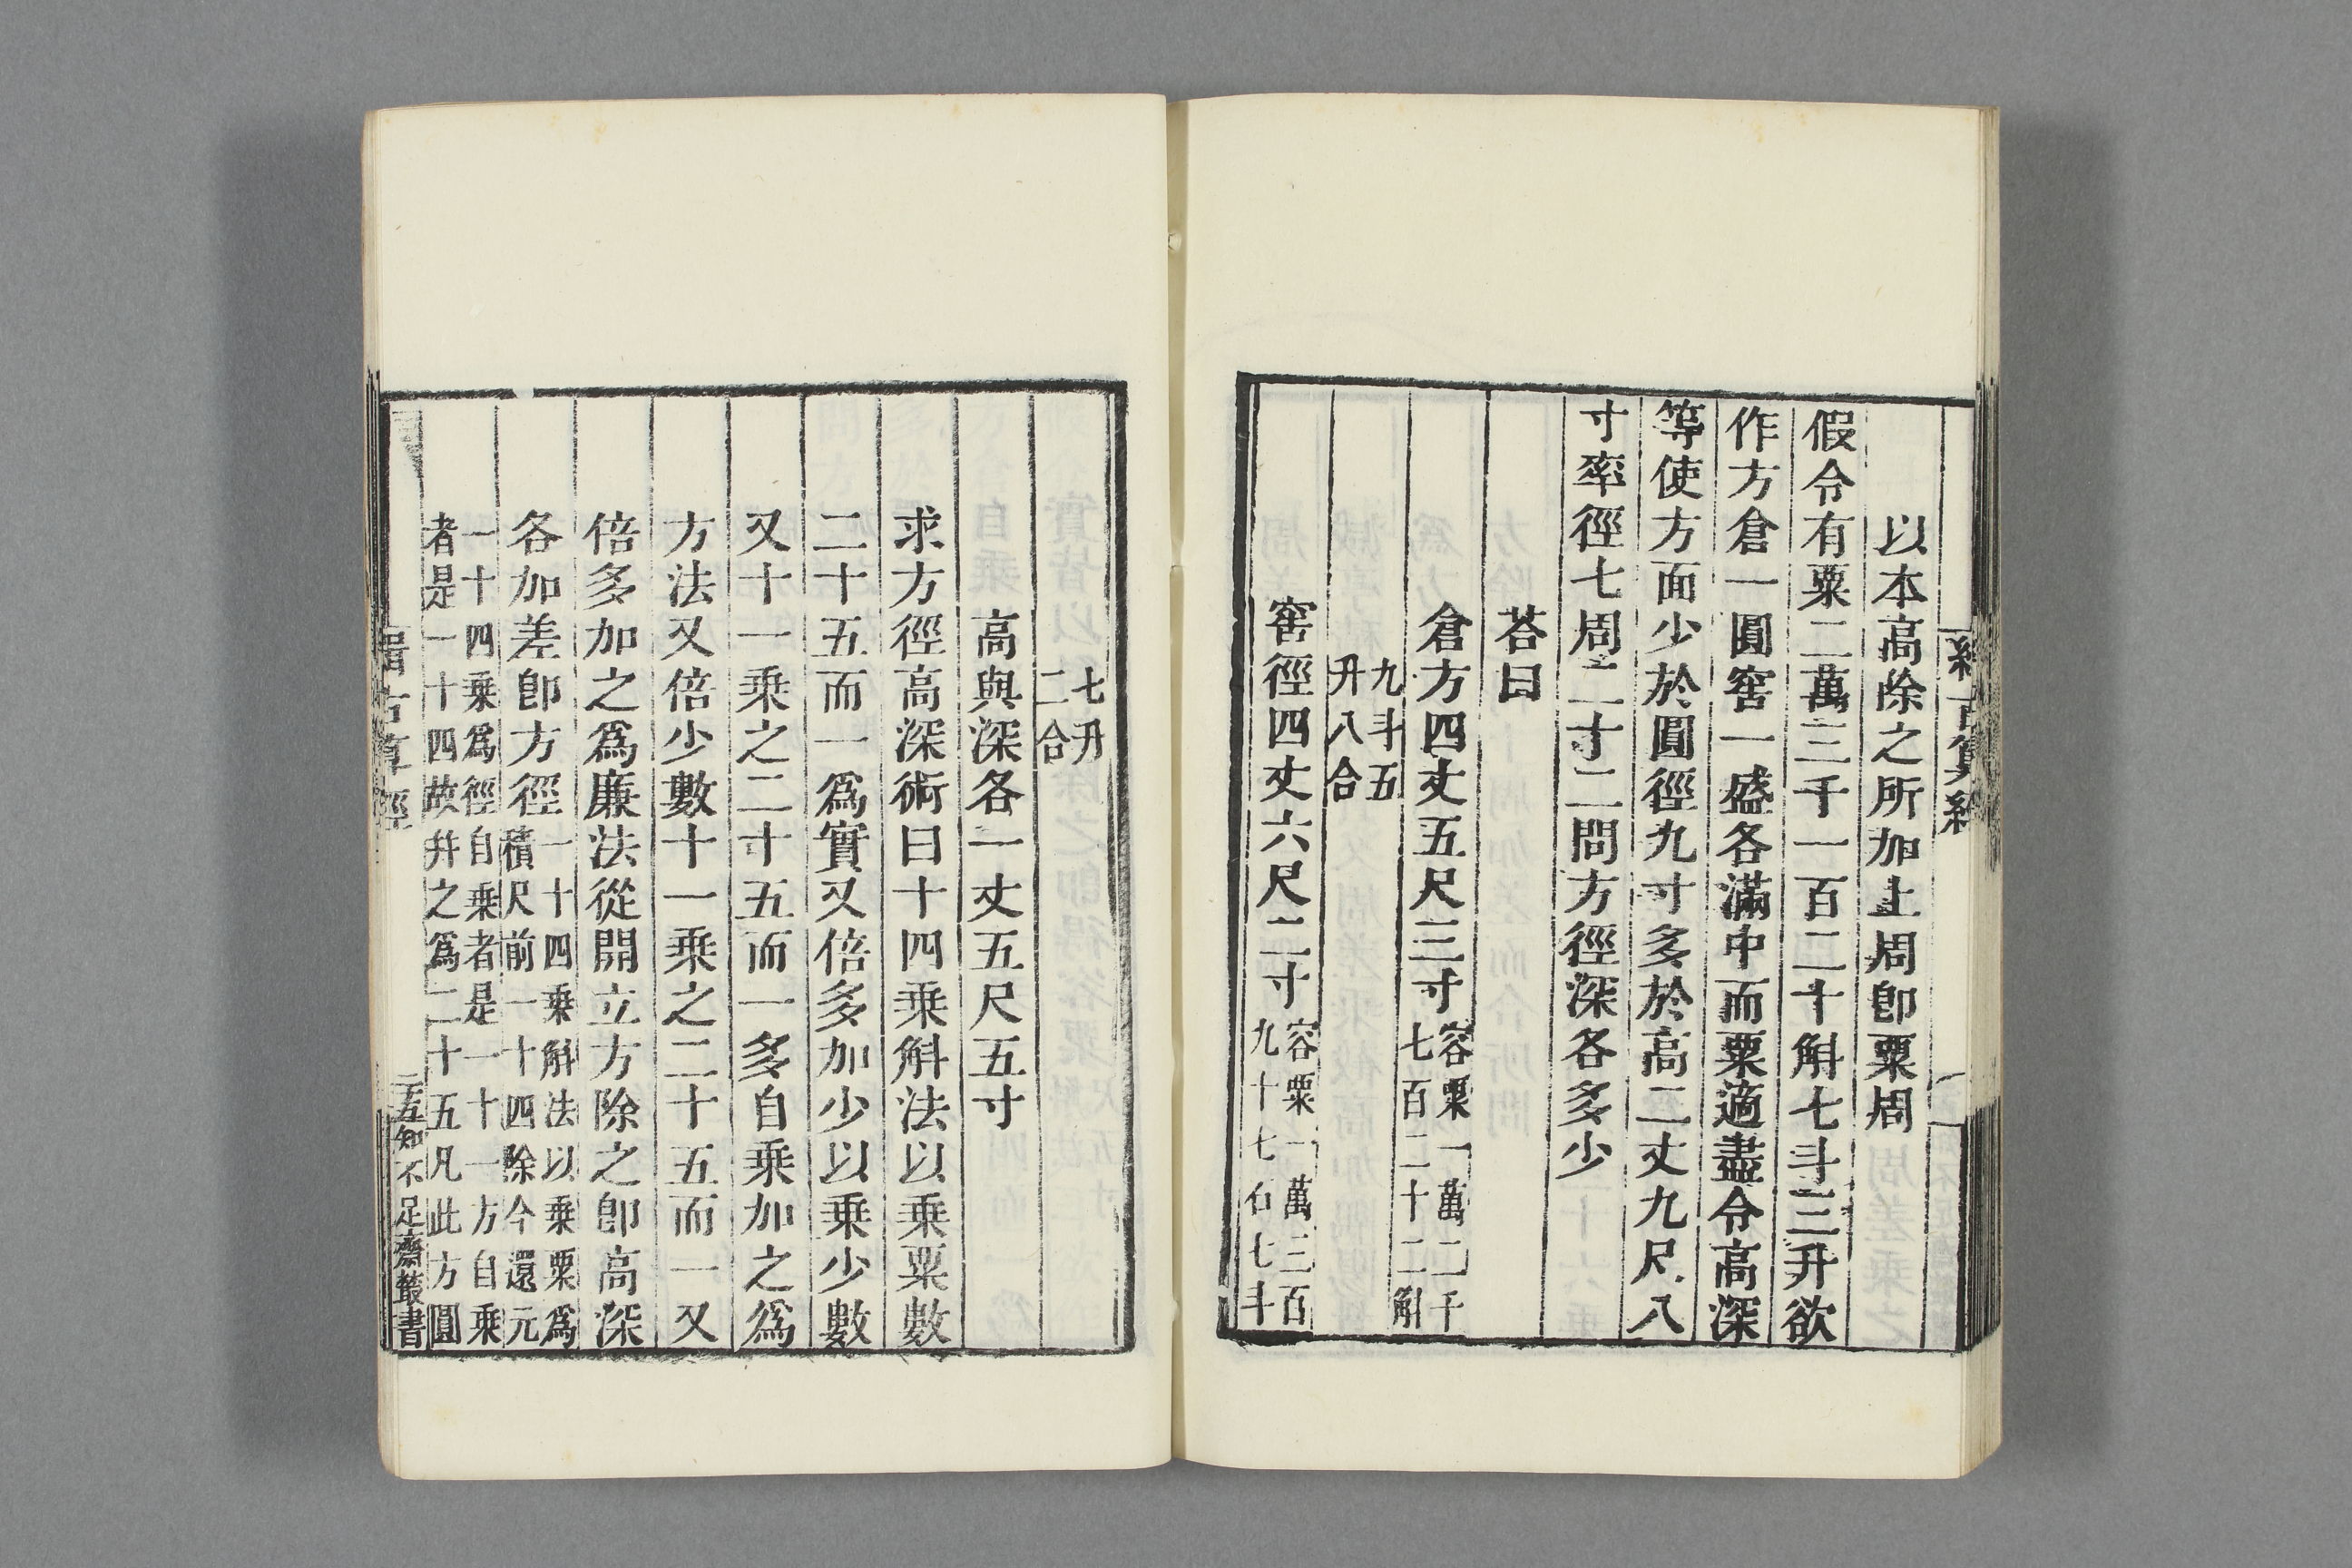 緝古算經
以本高除之所加上周卽粟周
假令有粟二萬三千一百二十斛七斗三升欲
作方倉一圓窖一盛各滿中而粟適盡令高深
等使方面少於圓徑九寸多於高二丈九尺八
寸率徑七周二寸二問方徑深各多少
荅曰
倉方四丈五尺三寸容粟一萬二千
七百二十二斛
九斗五
升八合
窖徑四丈六尺二寸容粟一萬三百
九十七石七斗
七升
二合
高與深各一丈五尺五寸
求方徑高深術曰十四乘斛法以乘粟數
二十五而一爲實又倍多加少以乘少數
又十一乘之二寸五而一多自乘加之爲
方法又倍少數十一乘之二十五而一又
倍多加之爲廉法從開立方除之卽高深
各加差卽方徑一十四乘斛法以乘粟爲
積尺前一十四除今還元
一十四乘爲徑自乘者是一十一方自乘
者是一十四故并之爲二十五凡此方圓
緝古算經
十五
知不足齋叢書